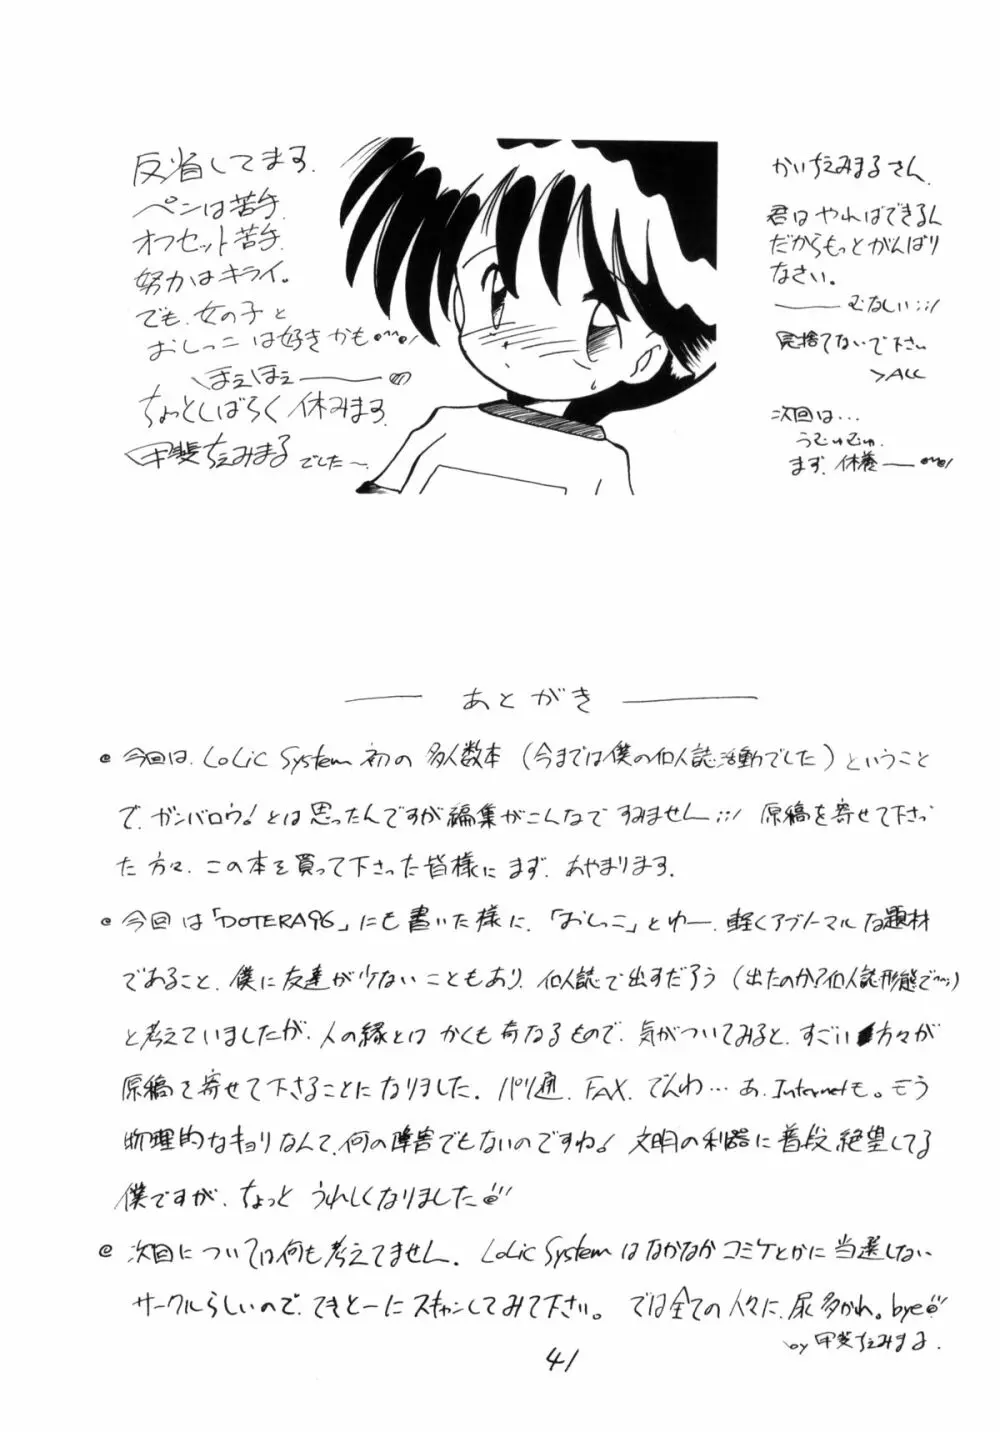 反省してます.
ペンは苦手.
オフセット苦手.
努力はキライ。
でも、女の子と
おしっこは好きかも
ほえほえ
ちょっとしばらく休みます.
甲斐ちえみまるでした〜.
かいちえみまるさん.
君はやればできるん
だからもっとがんばり
なさい。
むなしい;;!
見捨てないで下さい
>ALL
次回は...
うむゅむゅ.
まず、休養
あとがき
今回は、LoLic System初の多人数本(今までは僕の個人誌活動でした)ということ
で、ガンバロウ!とは思ったんですが編集がこんなですみません;;! 原稿を寄せて下さっ
た方々、この本を買って下さった皆様にまず、あやまります.
今回は「DOTERA96」にも書いた様に、「おしっこ」とゆー、軽くアブノーマルな題材
であること、僕に友達が少ないこともあり、個人誌で出すだろう(出たのか?個人誌形態で〜;)
と考えていましたが、人の縁とはかくも奇なるもので、気がついてみると、すごい方々が
原稿を寄せて下さることになりました. パソ通、FAX、でんわ...あ、Internetも。もう
物理的なキョリなんて、何の障害でもないのですね! 文明の利器に普段絶望してる
僕ですが、ちょっとうれしくなりました
次回については何も考えてません. LoLic Systemはなかなかコミケとかに当選しない
サークルらしいので、てきとーにスキャンしてみて下さい。では全ての人々に、尿多かれ。bye
by 甲斐ちえみまる.
41